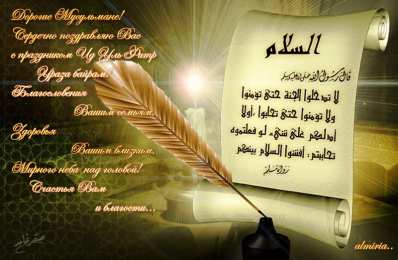 Дорогие Мусульмане!
Сердечно поздравляю Вас
с праздником Ид Уль-Фитр
Ураза байрам.
Благословения
Вашим семьям.
Здоровья
Вашим близким.
Мирного неба над головой!
Счастья Вам
и благости...
السلام
قال رسول الله صلى الله عليه وسلم
لا تدخلوا الجنة حتى تؤمنوا
ولا تؤمنوا حتى تحابوا أولا
أدلكم على شيء لو فعلتموه
تحاببتم أفشوا السلام بينكم
رواه مسلم
almiria..